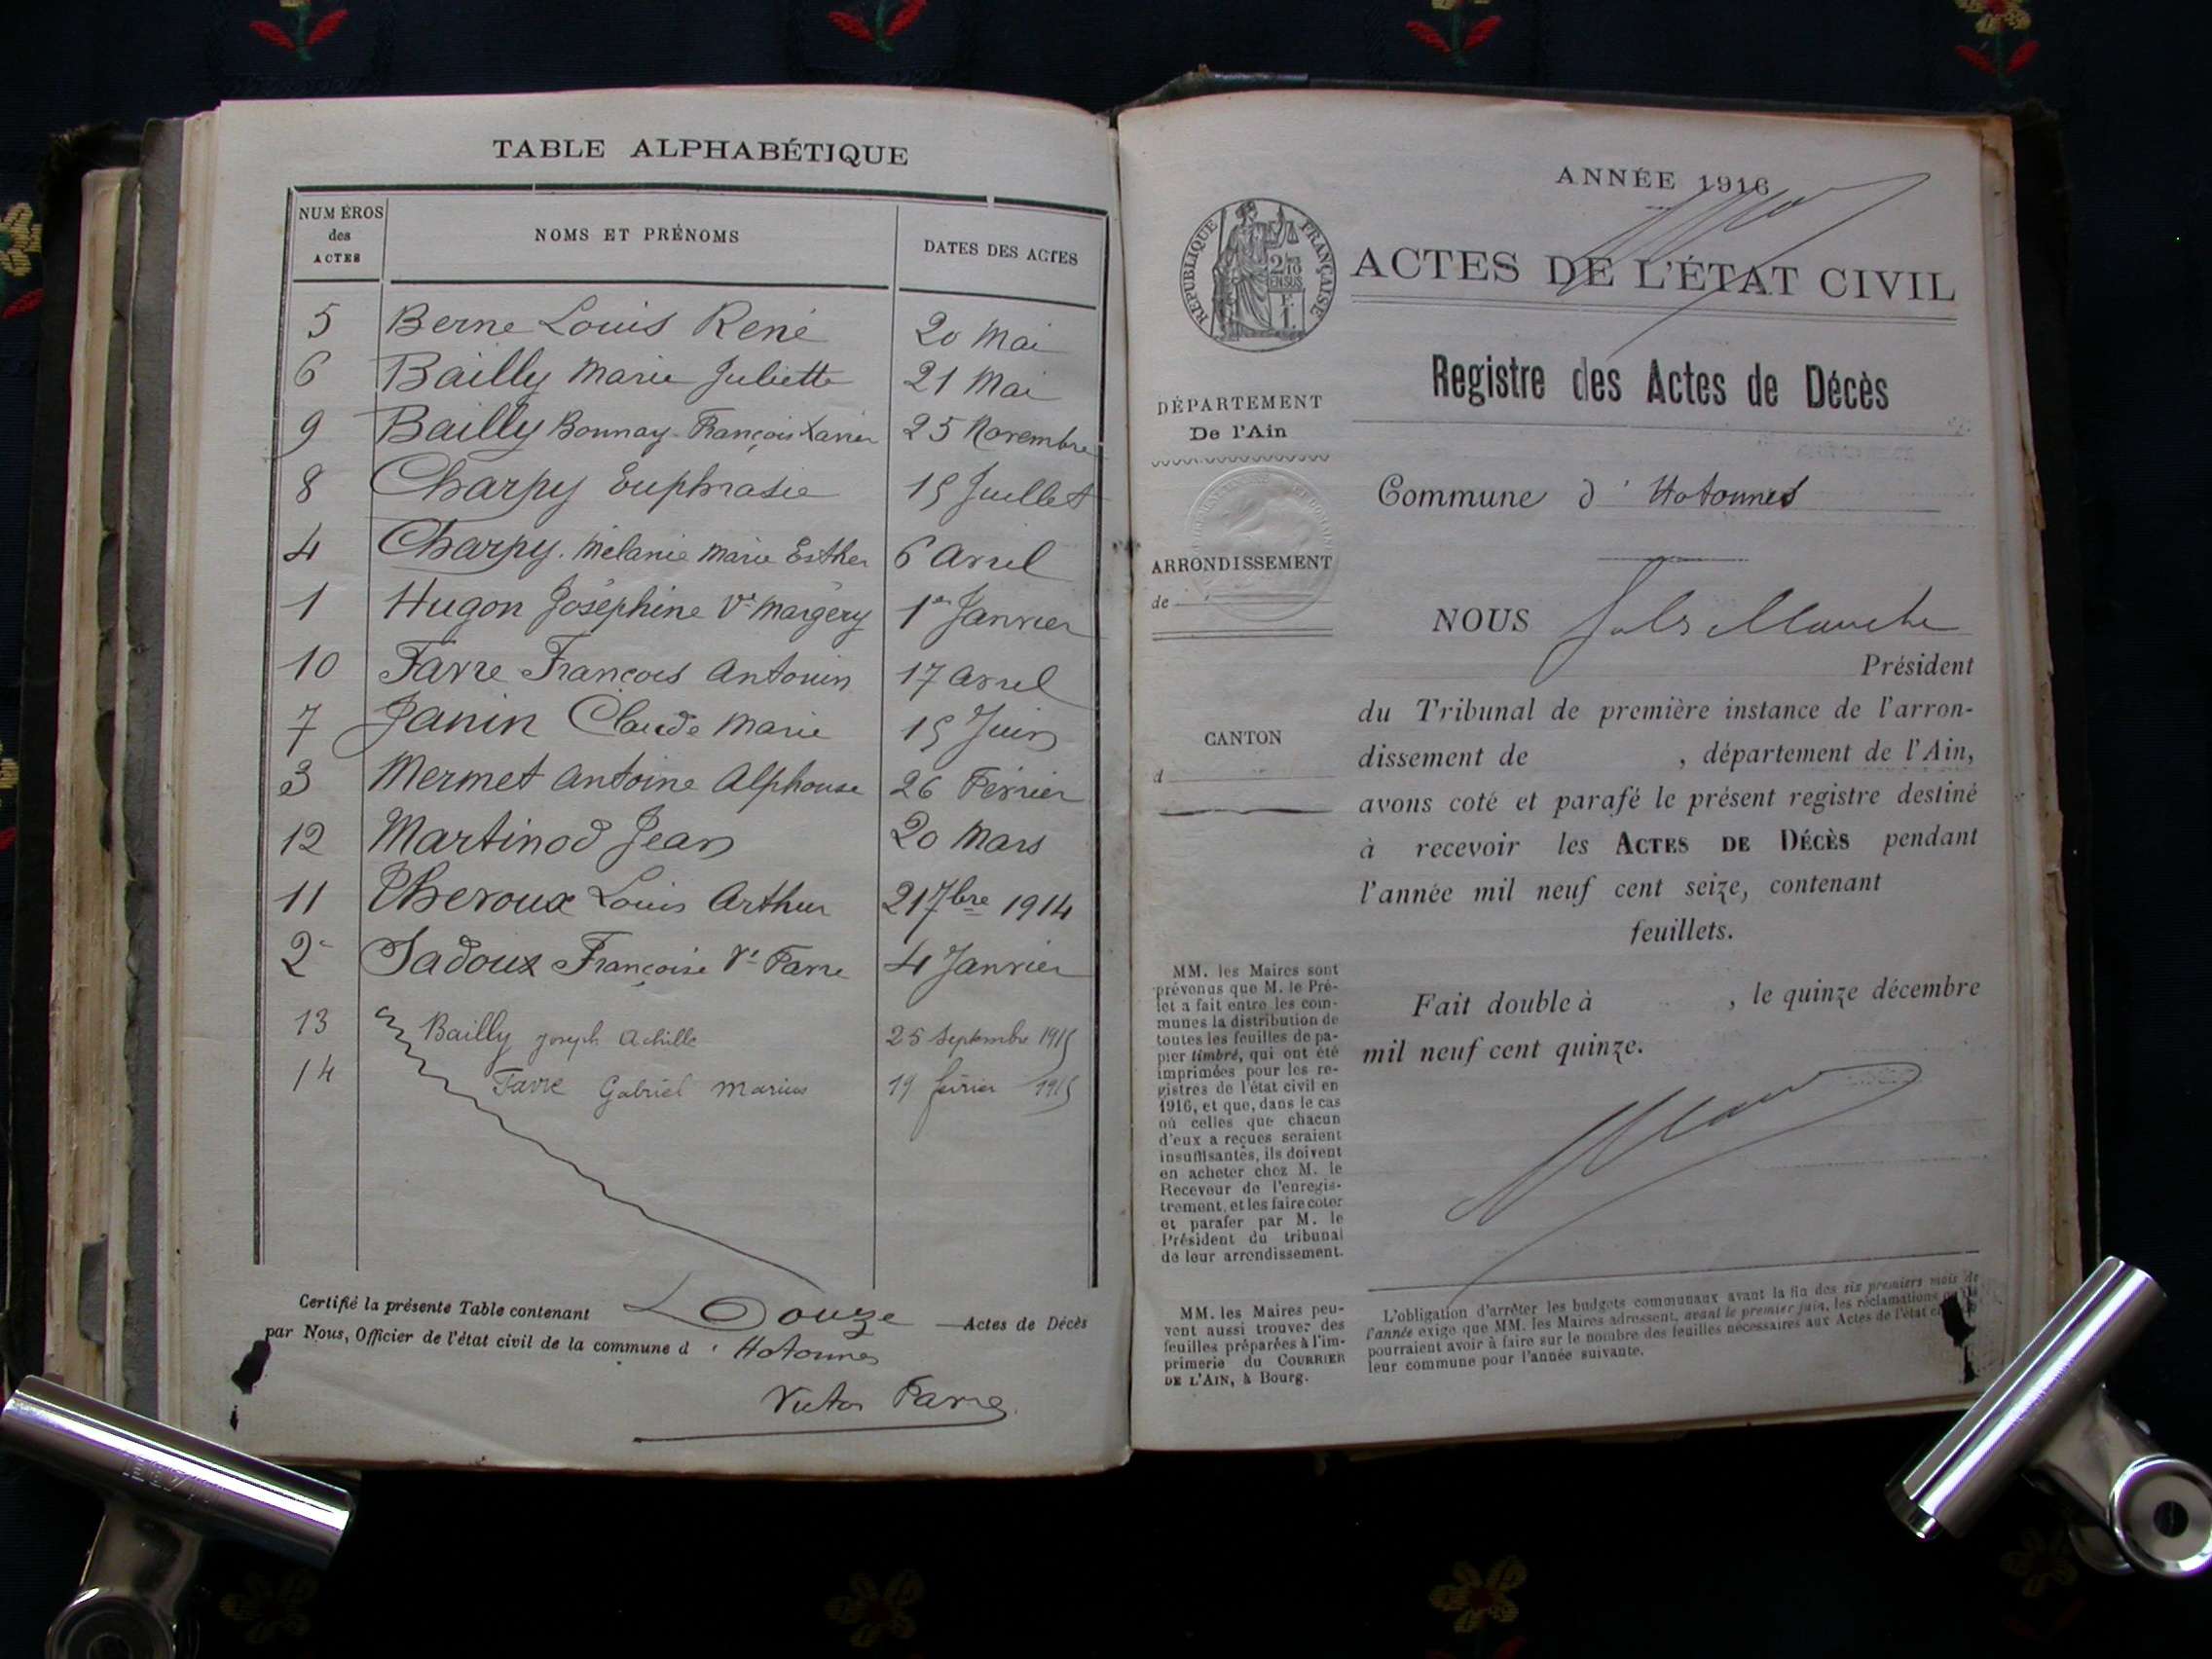 TABLE ALPHABÉTIQUE
NUMÉROS des ACTES
NOMS ET PRÉNOMS
DATES DES ACTES
5 Berne Louis René 20 Mai
6 Bailly Marie Juliette 21 Mai
9 Bailly Bonnay François Xavier 25 Novembre
8 Charpy Euphrasie 15 Juillet
4 Charpy. Mélanie Marie Esther 6 Avril
1 Hugon Joséphine Ve Margery 1er Janvier
10 Favre François Antonin 17 Avril
7 Janin Claude Marie 15 Juin
3 Mermet Antoine Alphonse 26 Février
12 Martinod Jean 20 Mars
11 Theroux Louis Arthur 21 7bre 1914
2 Sadoux Françoise Ve Favre 4 Janvier
13 Bailly Joseph Achille 25 Septembre 1915
14 Favre Gabriel Marius 19 février 1915
Certifié la présente Table contenant Douze Actes de Décès
par Nous, Officier de l'état civil de la commune d'Hotonnes
Victor Favre
ANNÉE 1916
RÉPUBLIQUE FRANÇAISE
2/10 EN SUS
F. 1
ACTES DE L'ÉTAT CIVIL
Registre des Actes de Décès
DÉPARTEMENT
De l'Ain
Commune d'Hotonnes
ARRONDISSEMENT
de
CANTON
d
NOUS
Président
du Tribunal de première instance de l'arron-
dissement de , département de l'Ain,
avons coté et parafé le présent registre destiné
à recevoir les ACTES DE DÉCÈS pendant
l'année mil neuf cent seize, contenant
feuillets.
Fait double à , le quinze décembre
mil neuf cent quinze.
MM. les Maires sont
prévenus que M. le Pré-
fet a fait entre les com-
munes la distribution de
toutes les feuilles de pa-
pier timbré, qui ont été
imprimées pour les re-
gistres de l'état civil en
1916, et que, dans le cas
où celles que chacun
d'eux a reçues seraient
insuffisantes, ils doivent
en acheter chez M. le
Receveur de l'enregis-
trement, et les faire coter
et parafer par M. le
Président du tribunal
de leur arrondissement.
MM. les Maires peu-
vent aussi trouver des
feuilles préparées à l'im-
primerie du COURRIER
DE L'AIN, à Bourg.
L'obligation d'arrêter les budgets communaux avant la fin des six premiers mois de
l'année exige que MM. les Maires adressent, avant le premier juin, les réclamations qu'ils
pourraient avoir à faire sur le nombre des feuilles nécessaires aux Actes de l'état civil de
leur commune pour l'année suivante.